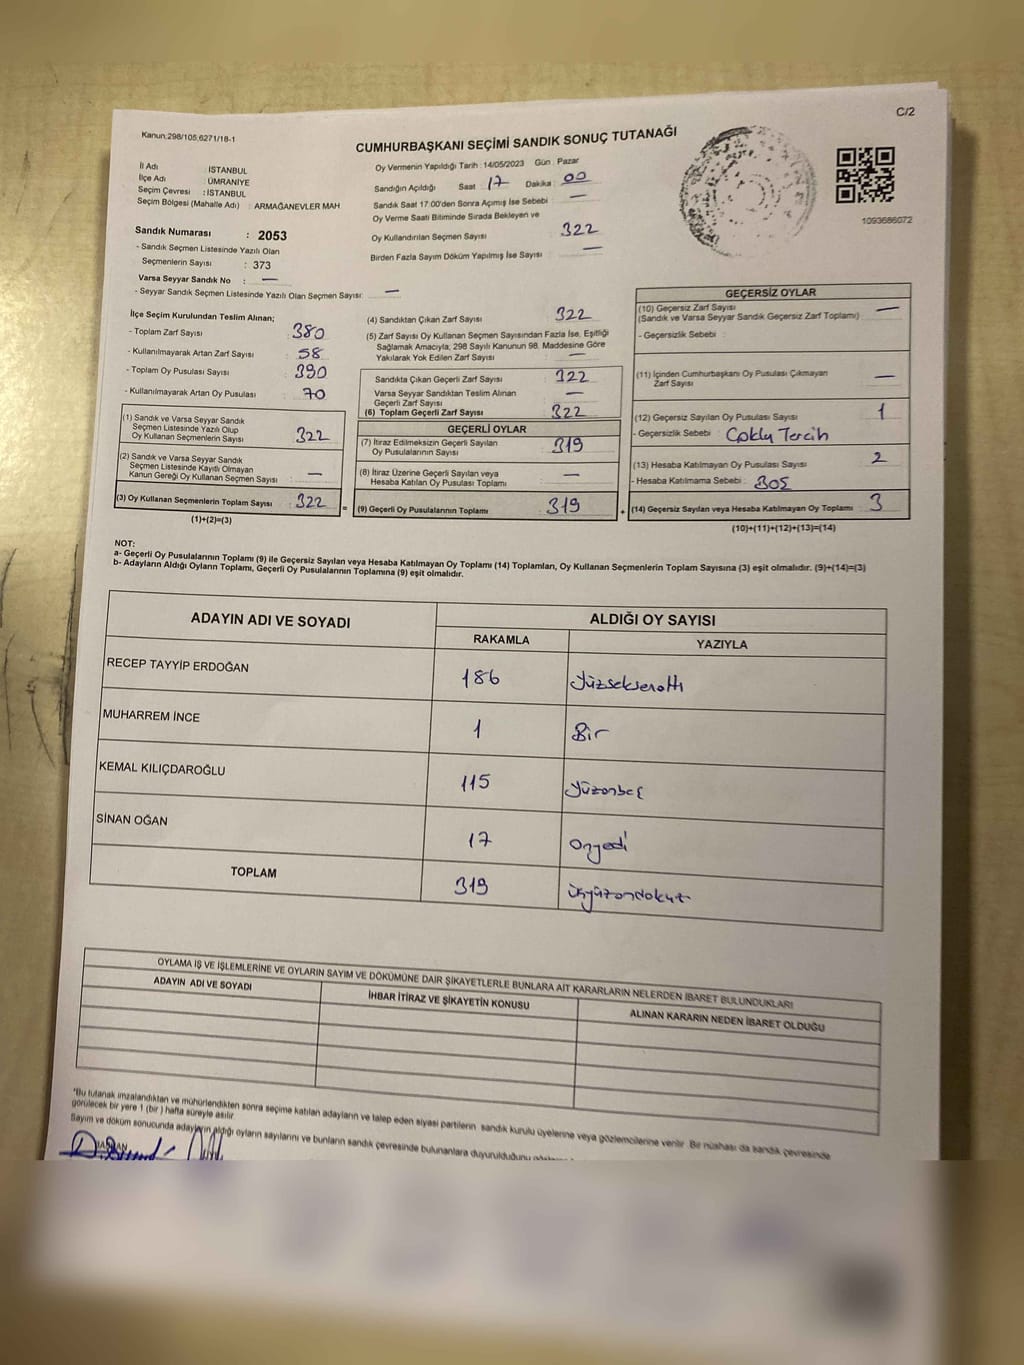 C/2
Kanun:298/105,6271/18-1
CUMHURBAŞKANI SEÇİMİ SANDIK SONUÇ TUTANAĞI
1093686072
İl Adı : İSTANBUL
İlçe Adı : ÜMRANİYE
Seçim Çevresi : İSTANBUL
Seçim Bölgesi (Mahalle Adı) : ARMAĞANEVLER MAH
Sandık Numarası : 2053
- Sandık Seçmen Listesinde Yazılı Olan
Seçmenlerin Sayısı : 373
Varsa Seyyar Sandık No : —
- Seyyar Sandık Seçmen Listesinde Yazılı Olan Seçmen Sayısı: —
Oy Vermenin Yapıldığı Tarih : 14/05/2023 Gün : Pazar
Sandığın Açıldığı Saat : 17 Dakika : 00
Sandık Saat 17:00'den Sonra Açımış İse Sebebi : —
Oy Verme Saati Bitiminde Sırada Bekleyen ve
Oy Kullandırılan Seçmen Sayısı : 322
Birden Fazla Sayım Döküm Yapılmış İse Sayısı : —
İlçe Seçim Kurulundan Teslim Alınan;
- Toplam Zarf Sayısı : 380
- Kullanılmayarak Artan Zarf Sayısı : 58
- Toplam Oy Pusulası Sayısı : 390
- Kullanılmayarak Artan Oy Pusulası : 70
(1) Sandık ve Varsa Seyyar Sandık
Seçmen Listesinde Yazılı Olup
Oy Kullanan Seçmenlerin Sayısı : 322
(2) Sandık ve Varsa Seyyar Sandık
Seçmen Listesinde Kayıtlı Olmayan
Kanun Gereği Oy Kullanan Seçmen Sayısı : —
(3) Oy Kullanan Seçmenlerin Toplam Sayısı : 322 =
(1)+(2)=(3)
(4) Sandıktan Çıkan Zarf Sayısı : 322
(5) Zarf Sayısı Oy Kullanan Seçmen Sayısından Fazla İse, Eşitliği
Sağlamak Amacıyla, 298 Sayılı Kanunun 98. Maddesine Göre
Yakılarak Yok Edilen Zarf Sayısı : —
Sandıkta Çıkan Geçerli Zarf Sayısı : 322
Varsa Seyyar Sandıktan Teslim Alınan
Geçerli Zarf Sayısı : —
(6) Toplam Geçerli Zarf Sayısı : 322
GEÇERLİ OYLAR
(7) İtiraz Edilmeksizin Geçerli Sayılan
Oy Pusulalarının Sayısı : 319
(8) İtiraz Üzerine Geçerli Sayılan veya
Hesaba Katılan Oy Pusulası Toplamı : —
(9) Geçerli Oy Pusulalarının Toplamı : 319 +
GEÇERSİZ OYLAR
(10) Geçersiz Zarf Sayısı : —
(Sandık ve Varsa Seyyar Sandık Geçersiz Zarf Toplamı)
- Geçersizlik Sebebi :
(11) İçinden Cumhurbaşkanı Oy Pusulası Çıkmayan
Zarf Sayısı : —
(12) Geçersiz Sayılan Oy Pusulası Sayısı : 1
- Geçersizlik Sebebi : Çoklu Tercih
(13) Hesaba Katılmayan Oy Pusulası Sayısı : 2
- Hesaba Katılmama Sebebi : BOŞ
(14) Geçersiz Sayılan veya Hesaba Katılmayan Oy Toplamı : 3
(10)+(11)+(12)+(13)=(14)
NOT:
a- Geçerli Oy Pusulalarının Toplamı (9) ile Geçersiz Sayılan veya Hesaba Katılmayan Oy Toplamı (14) Toplamları, Oy Kullanan Seçmenlerin Toplam Sayısına (3) eşit olmalıdır. (9)+(14)=(3)
b- Adayların Aldığı Oyların Toplamı, Geçerli Oy Pusulalarının Toplamına (9) eşit olmalıdır.
ADAYIN ADI VE SOYADI ALDIĞI OY SAYISI
RAKAMLA YAZIYLA
RECEP TAYYİP ERDOĞAN 186 Yüzseksenaltı
MUHARREM İNCE 1 Bir
KEMAL KILIÇDAROĞLU 115 Yüzonbeş
SİNAN OĞAN 17 Onyedi
TOPLAM 319 üçyüzondokuz
OYLAMA İŞ VE İŞLEMLERİNE VE OYLARIN SAYIM VE DÖKÜMÜNE DAİR ŞİKAYETLERLE BUNLARA AİT KARARLARIN NELERDEN İBARET BULUNDUKLARI
ADAYIN ADI VE SOYADI İHBAR İTİRAZ VE ŞİKAYETİN KONUSU ALINAN KARARIN NEDEN İBARET OLDUĞU
"Bu tutanak imzalandıktan ve mühürlendikten sonra seçime katılan adayların ve talep eden siyasi partilerin sandık kurulu üyelerine veya gözlemcilerine verilir. Bir nüshası da sandık çevresinde
görülecek bir yere 1 (bir) hafta süreyle asılır.
Sayım ve döküm sonucunda adayların aldığı oyların sayılarını ve bunların sandık çevresinde bulunanlara duyurulduğunu